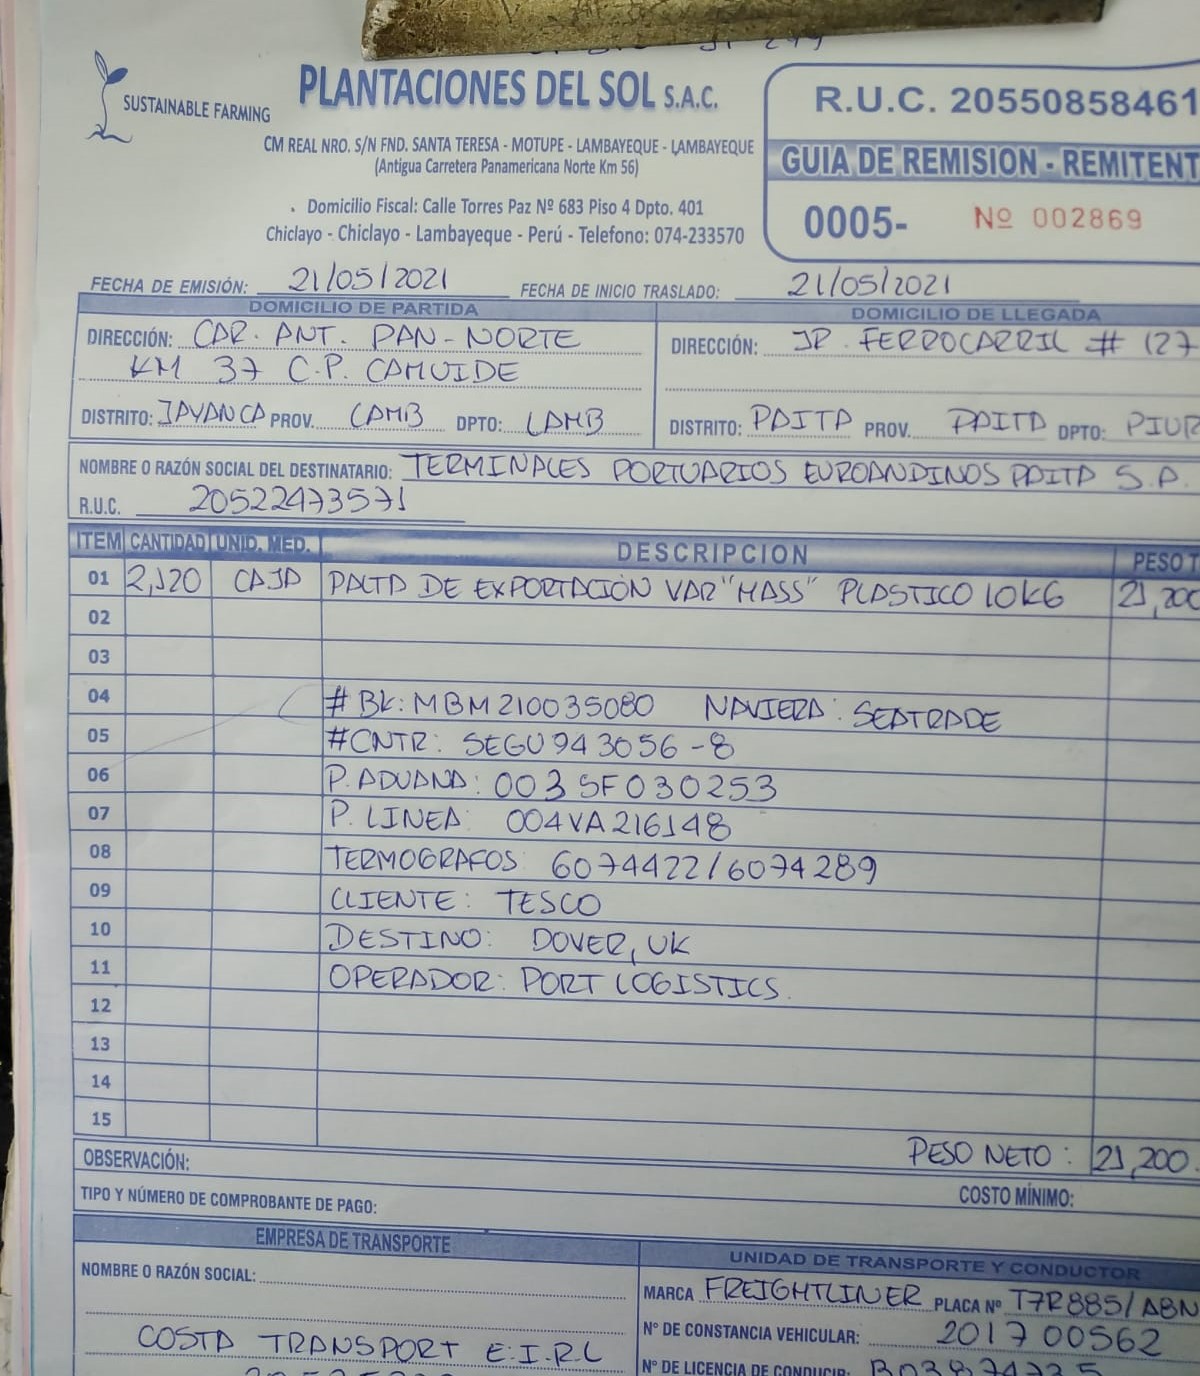 SUSTAINABLE FARMING
PLANTACIONES DEL SOL S.A.C.
CM REAL NRO. S/N FND. SANTA TERESA - MOTUPE - LAMBAYEQUE - LAMBAYEQUE
(Antigua Carretera Panamericana Norte Km 56)
Domicilio Fiscal: Calle Torres Paz Nº 683 Piso 4 Dpto. 401
Chiclayo - Chiclayo - Lambayeque - Perú - Telefono: 074-233570
R.U.C. 20550858461
GUIA DE REMISION - REMITENT
0005- Nº 002869
FECHA DE EMISIÓN: 21/05/2021 FECHA DE INICIO TRASLADO: 21/05/2021
DOMICILIO DE PARTIDA
DIRECCIÓN: CAR. ANT. PAN-NORTE
KM 37 C.P. CAHUIDE
DISTRITO: JAYANCA PROV. LAMB DPTO: LAMB
DOMICILIO DE LLEGADA
DIRECCIÓN: JR. FERROCARRIL # 127
DISTRITO: PAITA PROV. PAITA DPTO: PIUR
NOMBRE O RAZÓN SOCIAL DEL DESTINATARIO: TERMINALES PORTUARIOS EUROANDINOS PAITA S.A.
R.U.C. 20522473571
ITEM CANTIDAD UNID. MED. DESCRIPCION PESO T
01 2,120 CAJA PALTA DE EXPORTACIÓN VAR "HASS" PLASTICO 10KG 21,200
02
03
04 #BK: MBM210035080 NAVIERA: SEATRADE
05 #CNTR: SEGU943056-8
06 P. ADUANA: 003SF030253
07 P. LINEA: 004VA216148
08 TERMOGRAFOS: 6074422/6074289
09 CLIENTE: TESCO
10 DESTINO: DOVER, UK
11 OPERADOR: PORT LOGISTICS.
12
13
14
15
PESO NETO: 21,200
OBSERVACIÓN:
TIPO Y NÚMERO DE COMPROBANTE DE PAGO: COSTO MÍNIMO:
EMPRESA DE TRANSPORTE
NOMBRE O RAZÓN SOCIAL:
COSTA TRANSPORT E.I.R.L
UNIDAD DE TRANSPORTE Y CONDUCTOR
MARCA FREIGHTLINER PLACA Nº T7R885/ABN
Nº DE CONSTANCIA VEHICULAR: 201700562
Nº DE LICENCIA DE CONDUCIR: